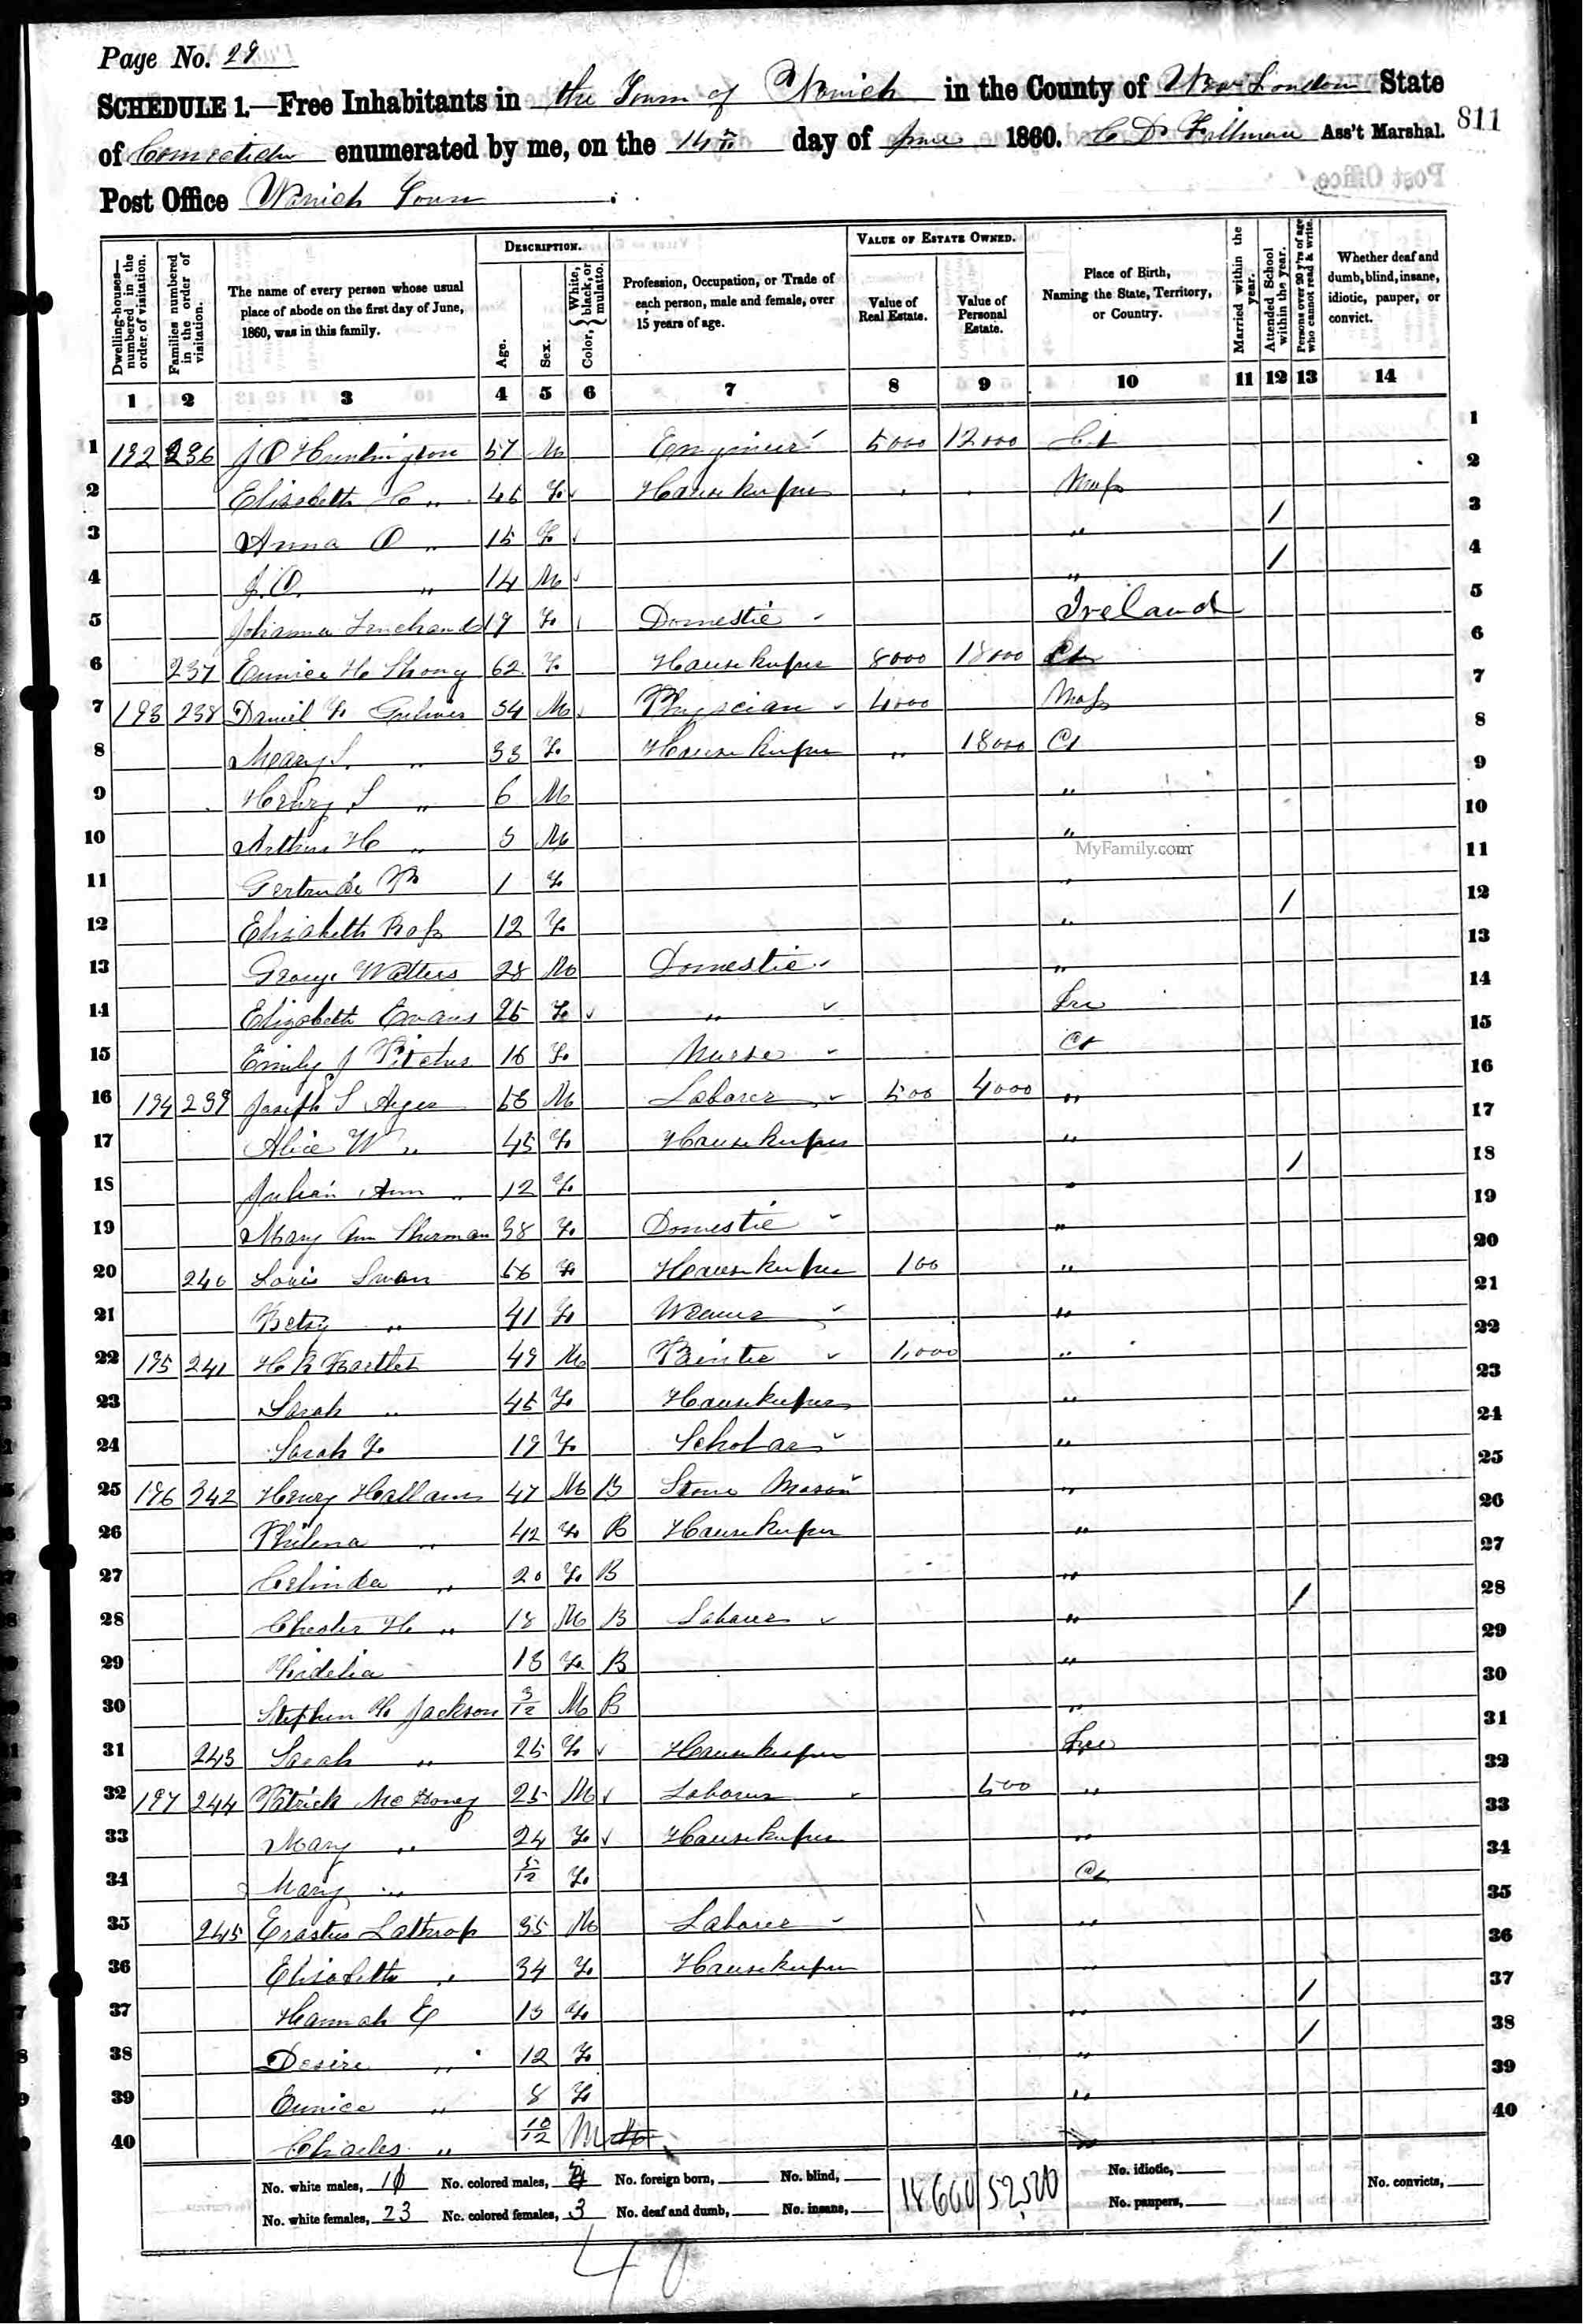 Page No. 29
SCHEDULE 1.—Free Inhabitants in the Town of Norwich in the County of New London State
of Connecticut enumerated by me, on the 14th day of June 1860. Ass't Marshal.
811
Post Office Norwich Town
Dwelling-houses—numbered in the order of visitation.
Families numbered in the order of visitation.
The name of every person whose usual place of abode on the first day of June, 1860, was in this family.
DESCRIPTION.
Age.
Sex.
Color, White, black, or mulatto.
Profession, Occupation, or Trade of each person, male and female, over 15 years of age.
VALUE OF ESTATE OWNED.
Value of Real Estate.
Value of Personal Estate.
Place of Birth, Naming the State, Territory, or Country.
Married within the year.
Attended School within the year.
Persons over 20 y'rs of age who cannot read & write.
Whether deaf and dumb, blind, insane, idiotic, pauper, or convict.
1 2 3 4 5 6 7 8 9 10 11 12 13 14
1 192 236 J O Huntington 57 M Engineer 5000 12000 Ct 1
2 Elisabeth C " 45 F Housekeeper Mass 2
3 Anna O " 15 F " / 3
4 J. O. " 14 M " / 4
5 Johanna 19 F Domestic Ireland 5
6 237 Eunice H Strong 62 F Housekeeper 8000 18000 Ct 6
7 193 238 Daniel F Gulliver 34 M Physician 4000 Mass 7
8 Mary S. " 33 F Housekeeper " 18000 Ct 8
9 Henry S " 6 M " 9
10 Arthur H " 5 M " 10
MyFamily.com
11 Gertrude 1 F " 11
12 Elizabeth Ross 12 F " / 12
13 George Watters 28 M Domestic " 13
14 Elizabeth Evans 25 F " Ire 14
15 Emily J 16 F Nurse Ct 15
16 194 239 Joseph S 58 M Laborer 500 4000 " 16
17 Alice W " 45 F Housekeeper " 17
18 Julian Ann " 12 F " / 18
19 Mary Ann Sherman 38 F Domestic " 19
20 240 Swan 56 F Housekeeper 100 " 20
21 Betsy " 41 F Weaver " 21
22 195 241 Bartlet 49 M Painter 1,000 " 22
23 Sarah " 45 F Housekeeper " 23
24 Sarah F 19 F Scholar " 24
25 196 342 Henry Hallam 47 M B Stone Mason " 25
26 Philena " 42 F B Housekeeper " 26
27 Celinda " 20 F B " 27
28 Chester H " 18 M B Laborer " / 28
29 Fidelia 18 F B " 29
30 Stephen H Jackson 3/12 M B " 30
31 243 Sarah " 25 F Housekeeper Ire 31
32 197 244 Patrick 25 M Laborer 500 " 32
33 Mary " 24 F Housekeeper " 33
34 Mary " 5/12 F Ct 34
35 245 Erastus Lathrop 35 M Laborer " 35
36 Elisabeth " 34 F Housekeeper " 36
37 Hannah E 13 F " / 37
38 Desire " 12 F " / 38
39 Eunice " 8 F " 39
40 Charles " 10/12 M " 40
No. white males, No. colored males, No. foreign born, No. blind, 18600 52500 No. idiotic, No. convicts,
No. white females, 23 No. colored females, 3 No. deaf and dumb, No. insane, No. paupers,
40